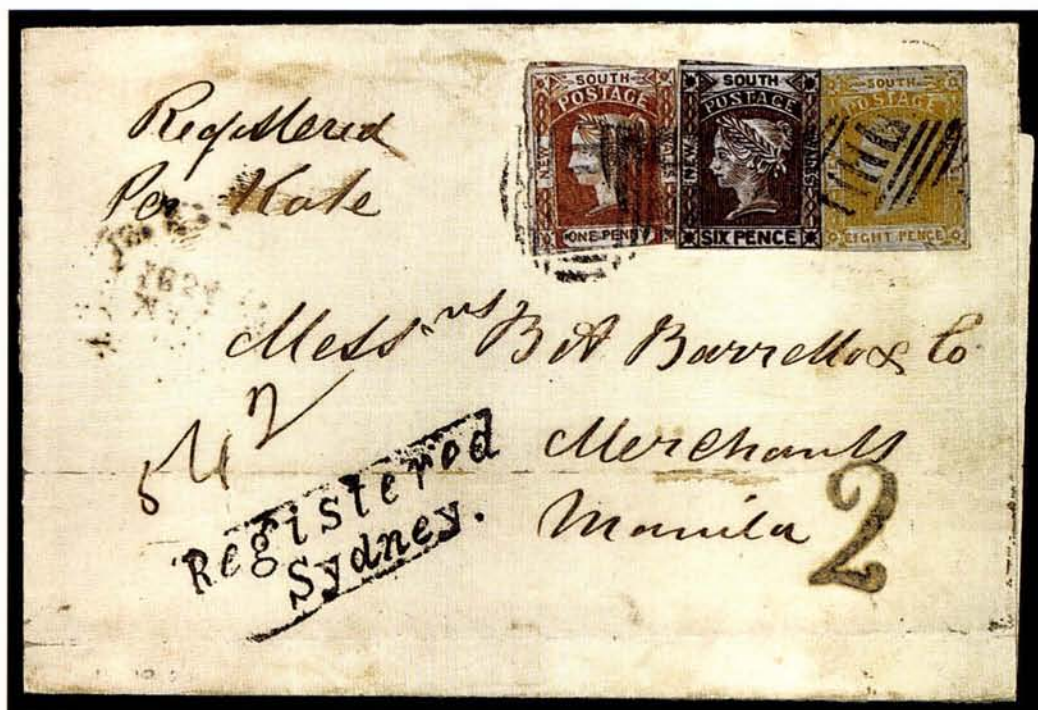 Registered
Per Kate
SOUTH
POSTAGE
NEW
WALES
ONE PENNY
SOUTH
POSTAGE
NEW
WALES
SIX PENCE
SOUTH
POSTAGE
EIGHT PENCE
Messrs B A Barretto & Co
Merchants
Manila
542
Registered
Sydney.
2